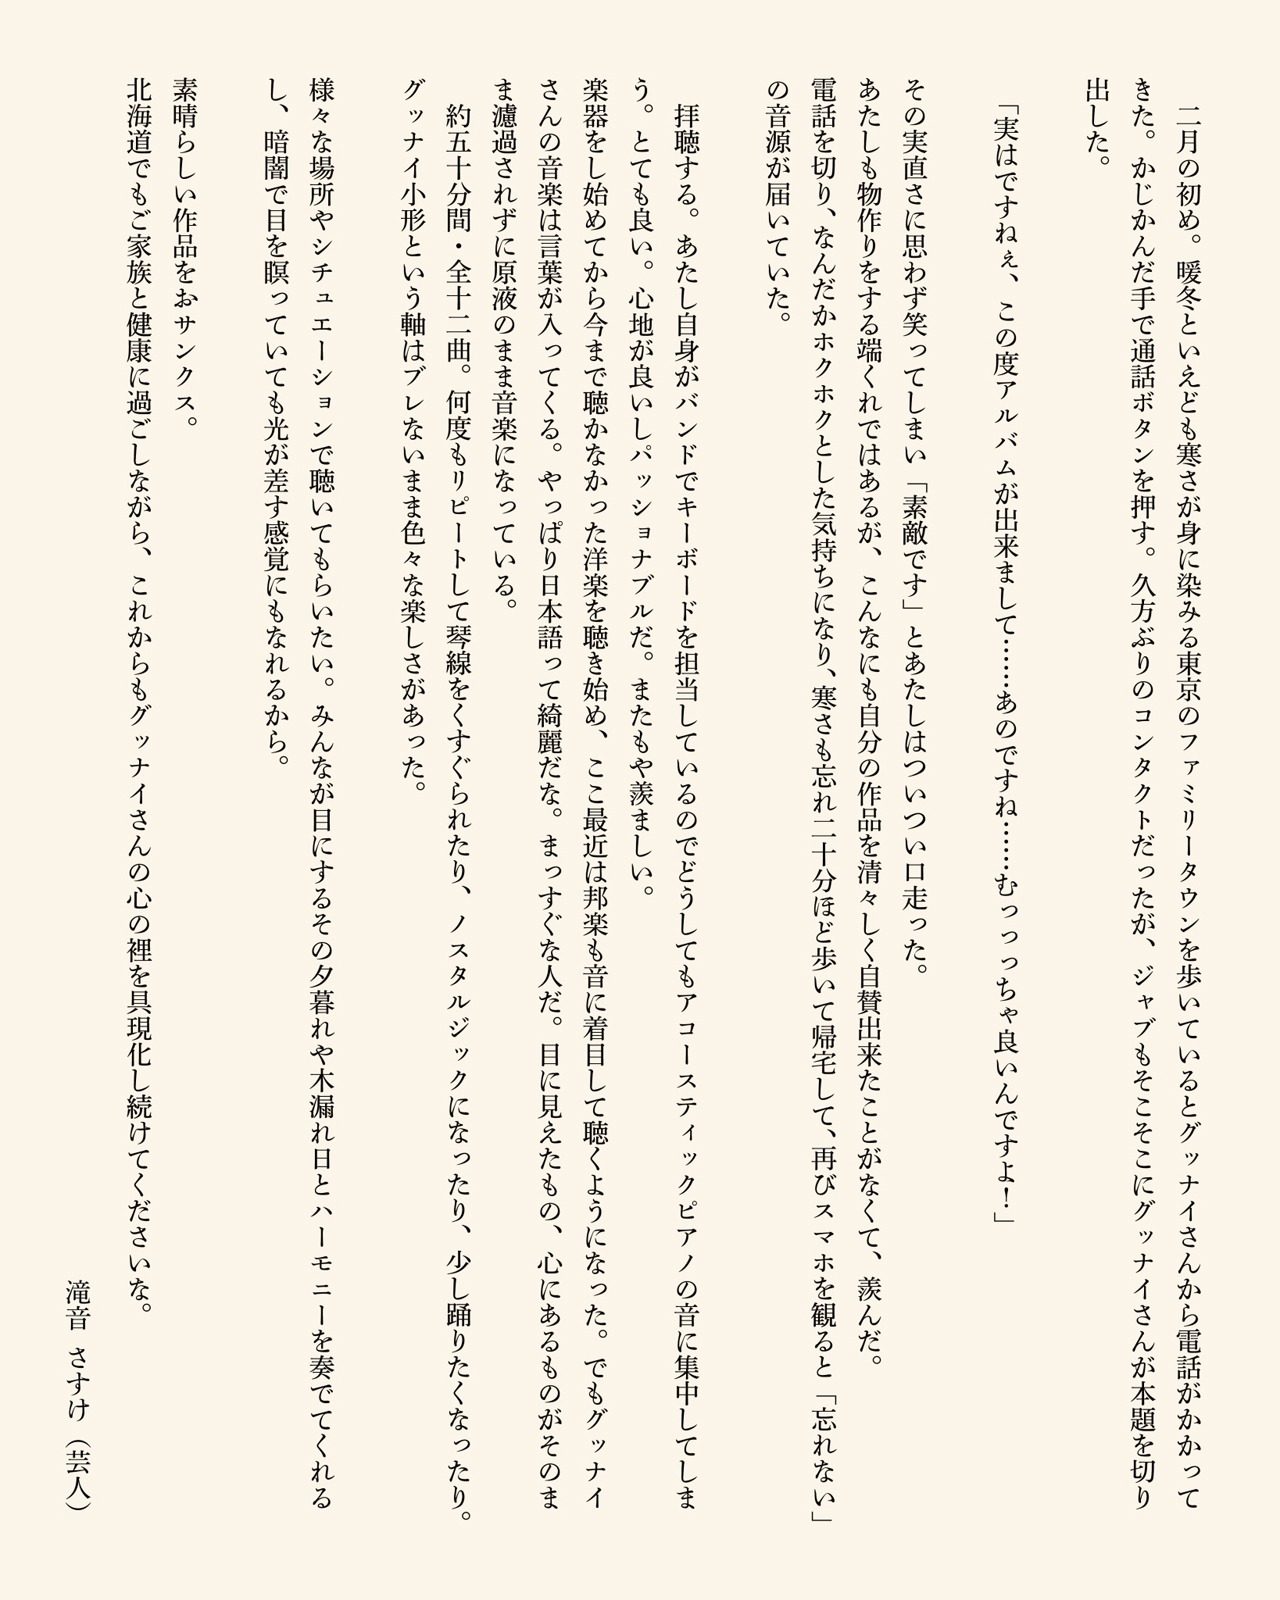 二月の初め。暖冬といえども寒さが身に染みる東京のファミリータウンを歩いているとグッナイさんから電話がかかって
きた。かじかんだ手で通話ボタンを押す。久方ぶりのコンタクトだったが、ジャブもそこそこにグッナイさんが本題を切り
出した。
「実はですねぇ、この度アルバムが出来まして……あのですね……むっっっちゃ良いんですよ！」
その実直さに思わず笑ってしまい「素敵です」とあたしはついつい口走った。
あたしも物作りをする端くれではあるが、こんなにも自分の作品を清々しく自賛出来たことがなくて、羨んだ。
電話を切り、なんだかホクホクとした気持ちになり、寒さも忘れ二十分ほど歩いて帰宅して、再びスマホを観ると「忘れない」
の音源が届いていた。
拝聴する。あたし自身がバンドでキーボードを担当しているのでどうしてもアコースティックピアノの音に集中してしま
う。とても良い。心地が良いしパッショナブルだ。またもや羨ましい。
楽器をし始めてから今まで聴かなかった洋楽を聴き始め、ここ最近は邦楽も音に着目して聴くようになった。でもグッナイ
さんの音楽は言葉が入ってくる。やっぱり日本語って綺麗だな。まっすぐな人だ。目に見えたもの、心にあるものがそのま
ま濾過されずに原液のまま音楽になっている。
約五十分間・全十二曲。何度もリピートして琴線をくすぐられたり、ノスタルジックになったり、少し踊りたくなったり。
グッナイ小形という軸はブレないまま色々な楽しさがあった。
様々な場所やシチュエーションで聴いてもらいたい。みんなが目にするその夕暮れや木漏れ日とハーモニーを奏でてくれる
し、暗闇で目を瞑っていても光が差す感覚にもなれるから。
素晴らしい作品をおサンクス。
北海道でもご家族と健康に過ごしながら、これからもグッナイさんの心の裡を具現化し続けてくださいな。
滝音 さすけ（芸人）